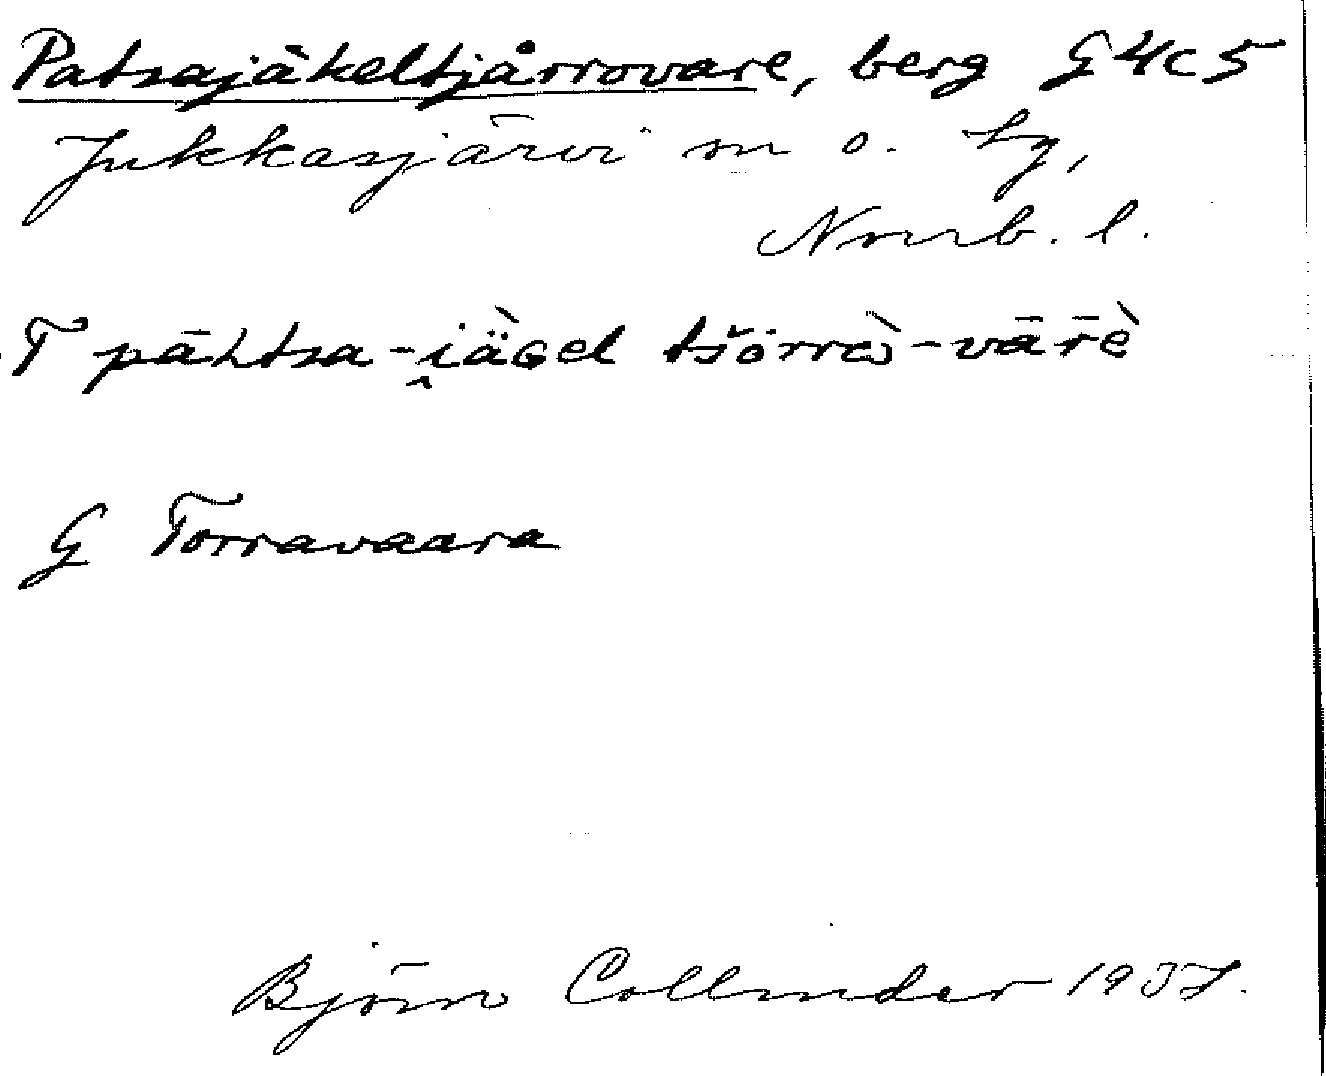 Patsajäkeltjårrovare, berg G4c5
Jukkasjärvi sn o. tg,
Norrb. l.
T pāʜtsa-i̯äᴅ̀el tšorrò-vārḕ
G Torravaara
Björn Collinder 1937.